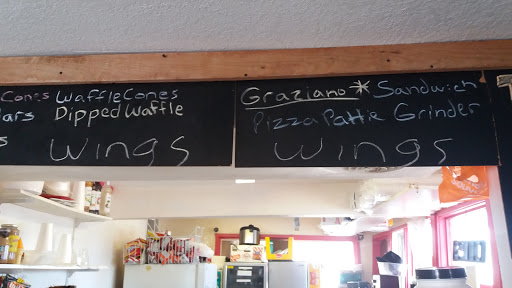 Cones Waffle Cones
ars Dipped Waffle
s
Wings
Graziano* Sandwich
Pizza Pattie Grinder
Wings